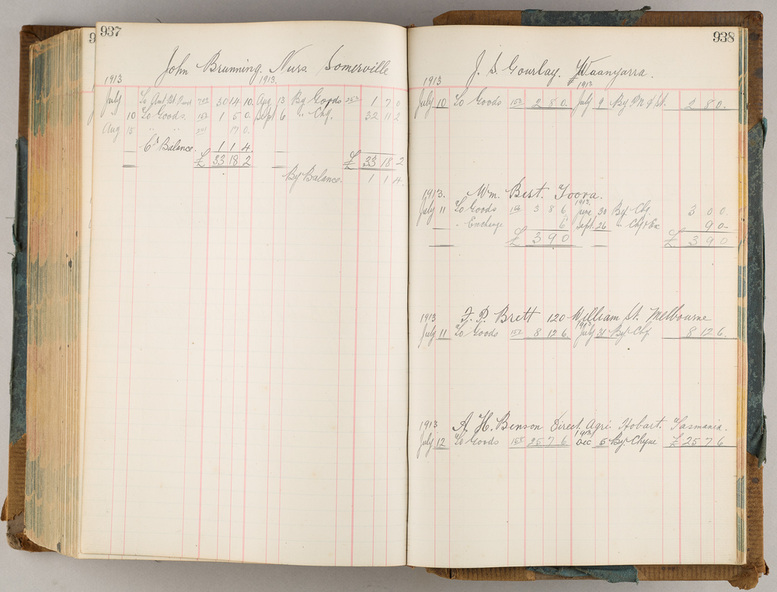 9 937
John Brunning. Nura Somerville
1913 1913
July To Amt. 30 14 10 Aug 13 By Goods 1 7 0
10 To Goods 1 5 0 Sept 6 " Chq. 32 11 2
Aug 18 " " 17 0
Co Balance. 1 1 4
£ 33 18 2 £ 33 18 2
By Balance. 1 1 4
938
J. S. Gourlay. Waanyarra.
1913 1913
July 10 To Goods 153 2 8 0 July 9 By M O St. 2 8 0
1913. Wm. Best. Toora.
1913
July 11 To Goods 3 8 6 June 30 By Chq 3 0 0
" Exchange 6 Sept 26 " Chq & Ex 9 0
£ 3 9 0 £ 3 9 0
1913 F. D. Brett 120 William St. Melbourne
1913
July 11 To Goods 153 8 12 6 July 31 By Chq 8 12 6
1913 A. H. Benson Direct. Agri Hobart. Tasmania.
1913
July 12 To Goods 155 25 7 6 Dec 5 By Cheque £ 25 7 6